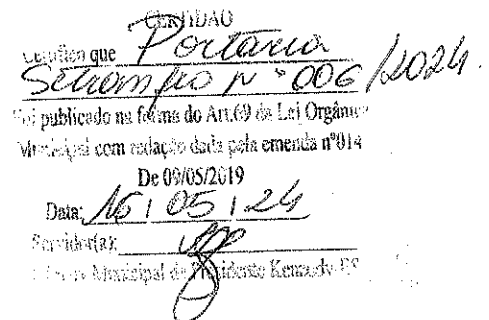 CERTIDÃO
Certifico que Portaria
Nº 006/2024.
Foi publicado na forma do Art.69 da Lei Orgânica
Municipal com redação dada pela emenda nº014
De 09/05/2019
Data: 16 / 05 / 24
Servidor(a):
Municipal de Presidente Kennedy-ES